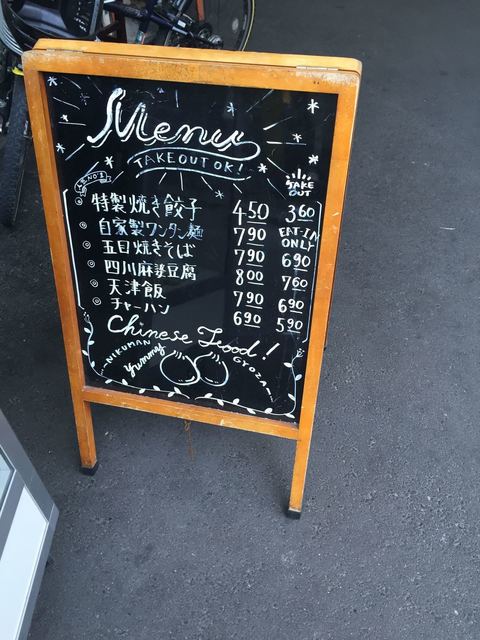 Menu
TAKE OUT OK!
TAKE OUT
特製焼き餃子 450 360
自家製ワンタン麺 790 EAT-IN ONLY
五目焼きそば 790 690
四川麻婆豆腐 800 760
天津飯 790 690
チャーハン 690 590
Chinese Food!
NIKUMAN
Yummy
GYOZA